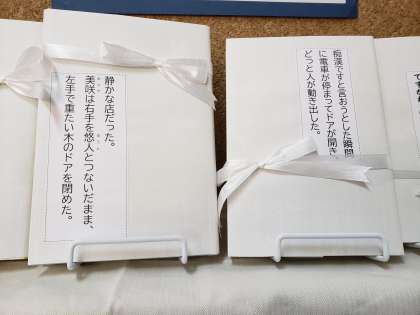 静かな店だった。
美咲は右手を悠人とつないだまま、
左手で重たい木のドアを閉めた。
痴漢ですと言おうとした瞬間
に電車が停まってドアが開き
どっと人が動き出した。